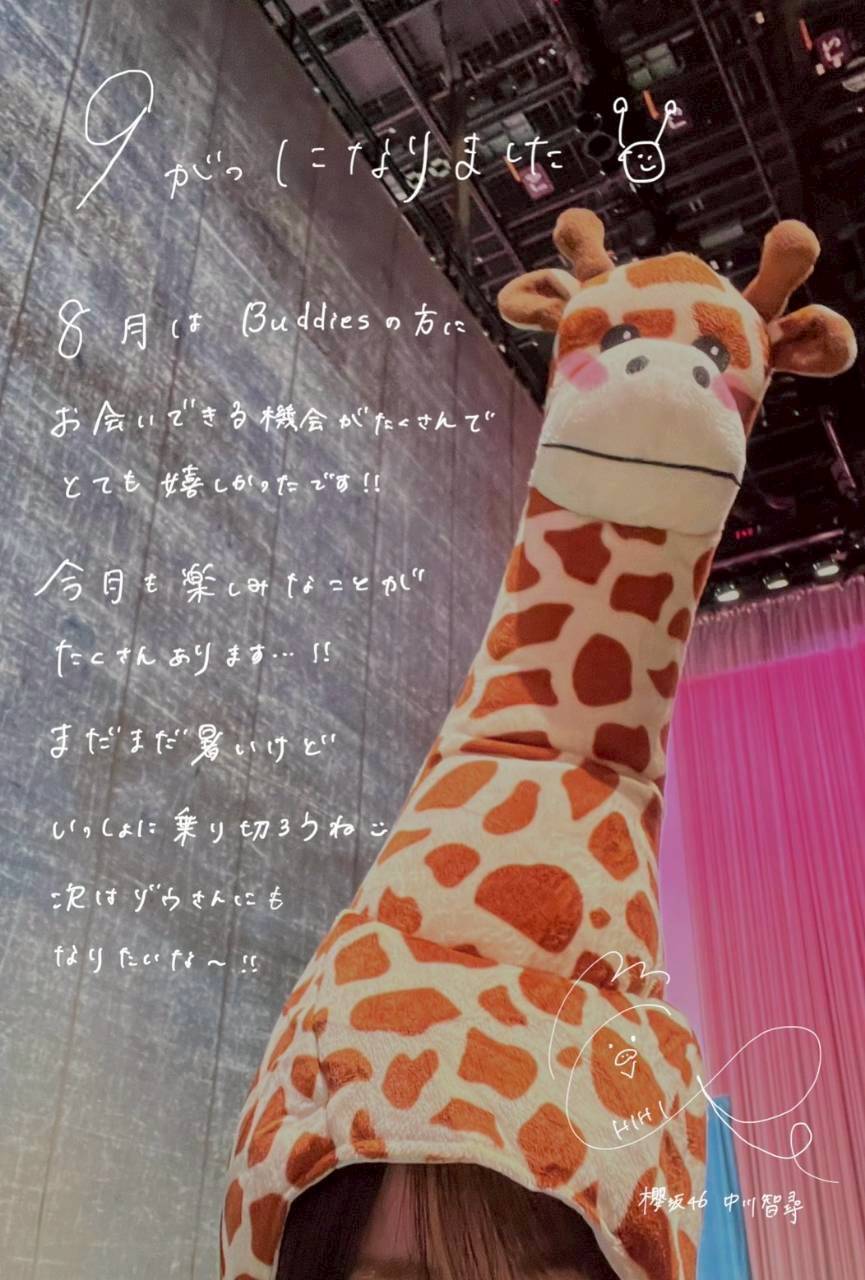 9がっしになりました
8月は Buddiesの方に
お会いできる機会がたくさんで
とても嬉しかったです!!
今月も楽しみなことが
たくさんあります…!!
まだまだ暑いけど
いっしょに乗り切ろうね
次はゾウさんにも
なりたいな〜!!
HIHI
櫻坂46 中川智尋